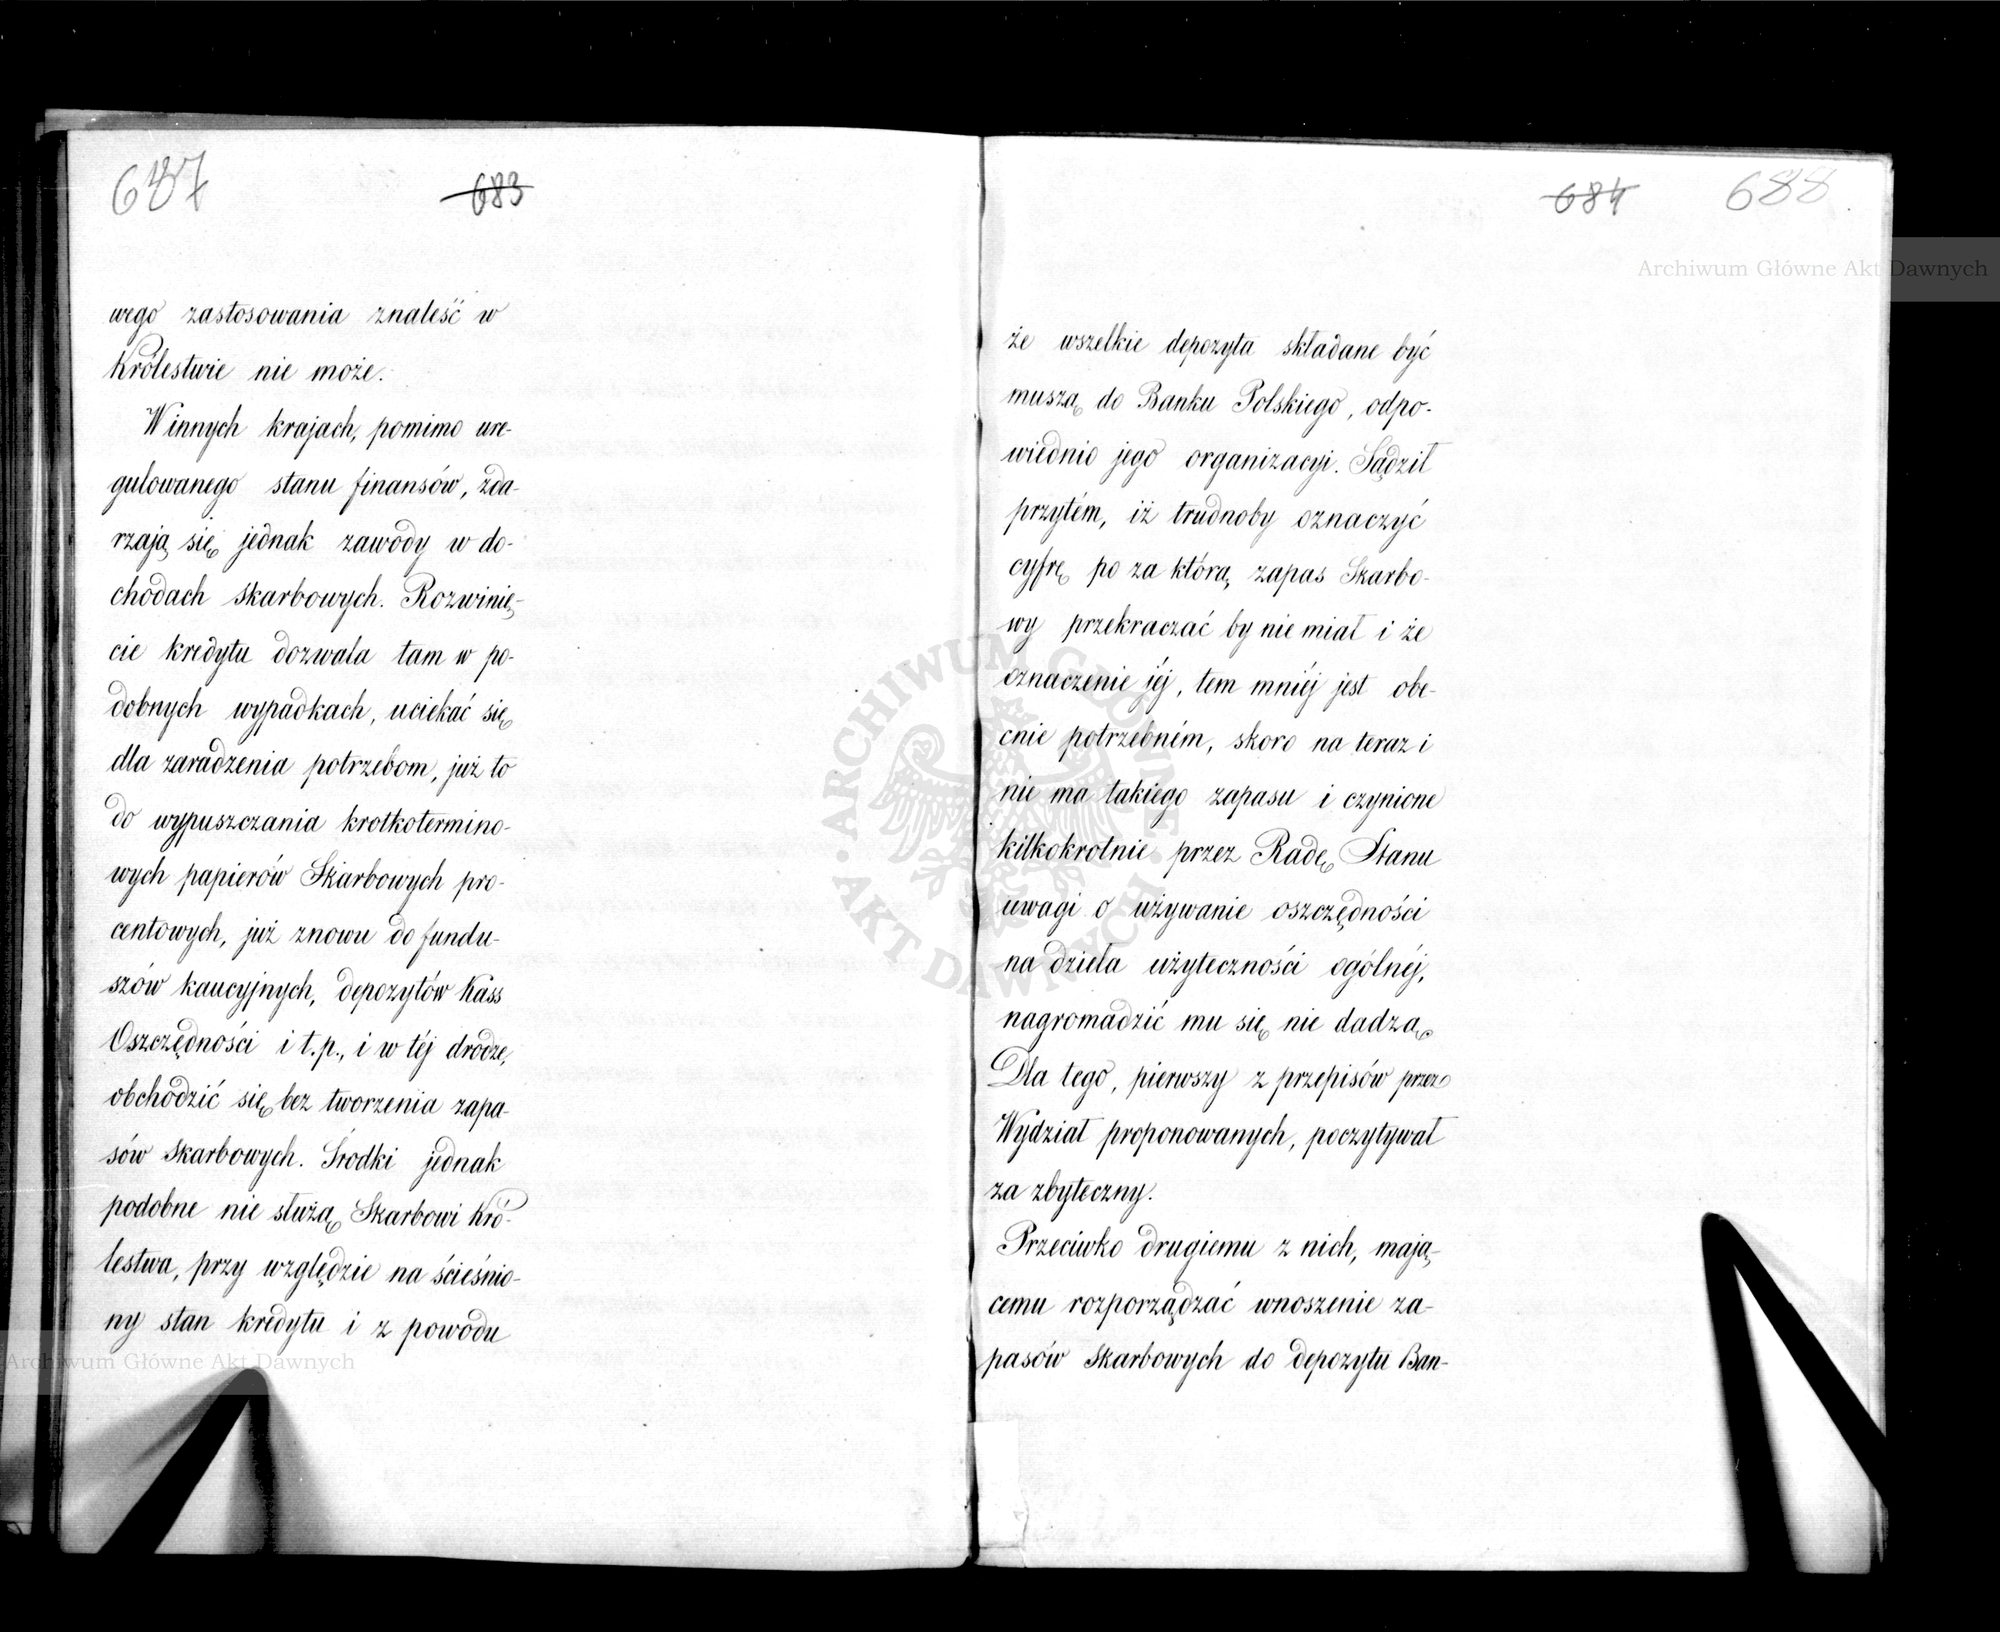 687
683
wego zastosowania znaleść w
Królestwie nie może.
W innych krajach, pomimo ure-
gulowanego stanu finansów, zda-
rzają się jednak zawody w do-
chodach skarbowych. Rozwinię-
cie kredytu dozwala tam w po-
dobnych wypadkach, uciekać się
dla zaradzenia potrzebom, już to
do wypuszczania krotkotermino-
wych papierów Skarbowych pro-
centowych, już znowu do fundu-
szów kaucyjnych, depozytów Kass
Oszczędności i t.p., i w téj drodze,
obchodzić się bez tworzenia zapa-
sów skarbowych. Środki jednak
podobne nie służą Skarbowi Kró-
lestwa, przy względzie na ścieśnio-
ny stan kredytu i z powodu
684
688
że wszelkie depozyta składane być
muszą do Banku Polskiego, odpo-
wiednio jego organizacyi. Sądził
przytém, iż trudnoby oznaczyć
cyfrę po za którą, zapas Skarbo-
wy przekraczać by nie miał i że
oznaczenie jéj, tem mniéj jest obe-
cnie potrzebném, skoro na teraz i
nie ma takiego zapasu i czynione
kilkokrotnie przez Radę Stanu
uwagi o używanie oszczędności
na dzieła użyteczności ogólnéj,
nagromadzić mu się nie dadzą
Dla tego, pierwszy z przepisów przez
Wydział proponowanych, poczytywał
za zbyteczny.
Przeciwko drugiemu z nich, mają-
cemu rozporządzać wnoszenie za-
pasów skarbowych do depozytu Ban-
Archiwum Główne Akt Dawnych
ARCHIWUM GŁÓWNE
AKT DAWNYCH
Archiwum Główne Akt Dawnych